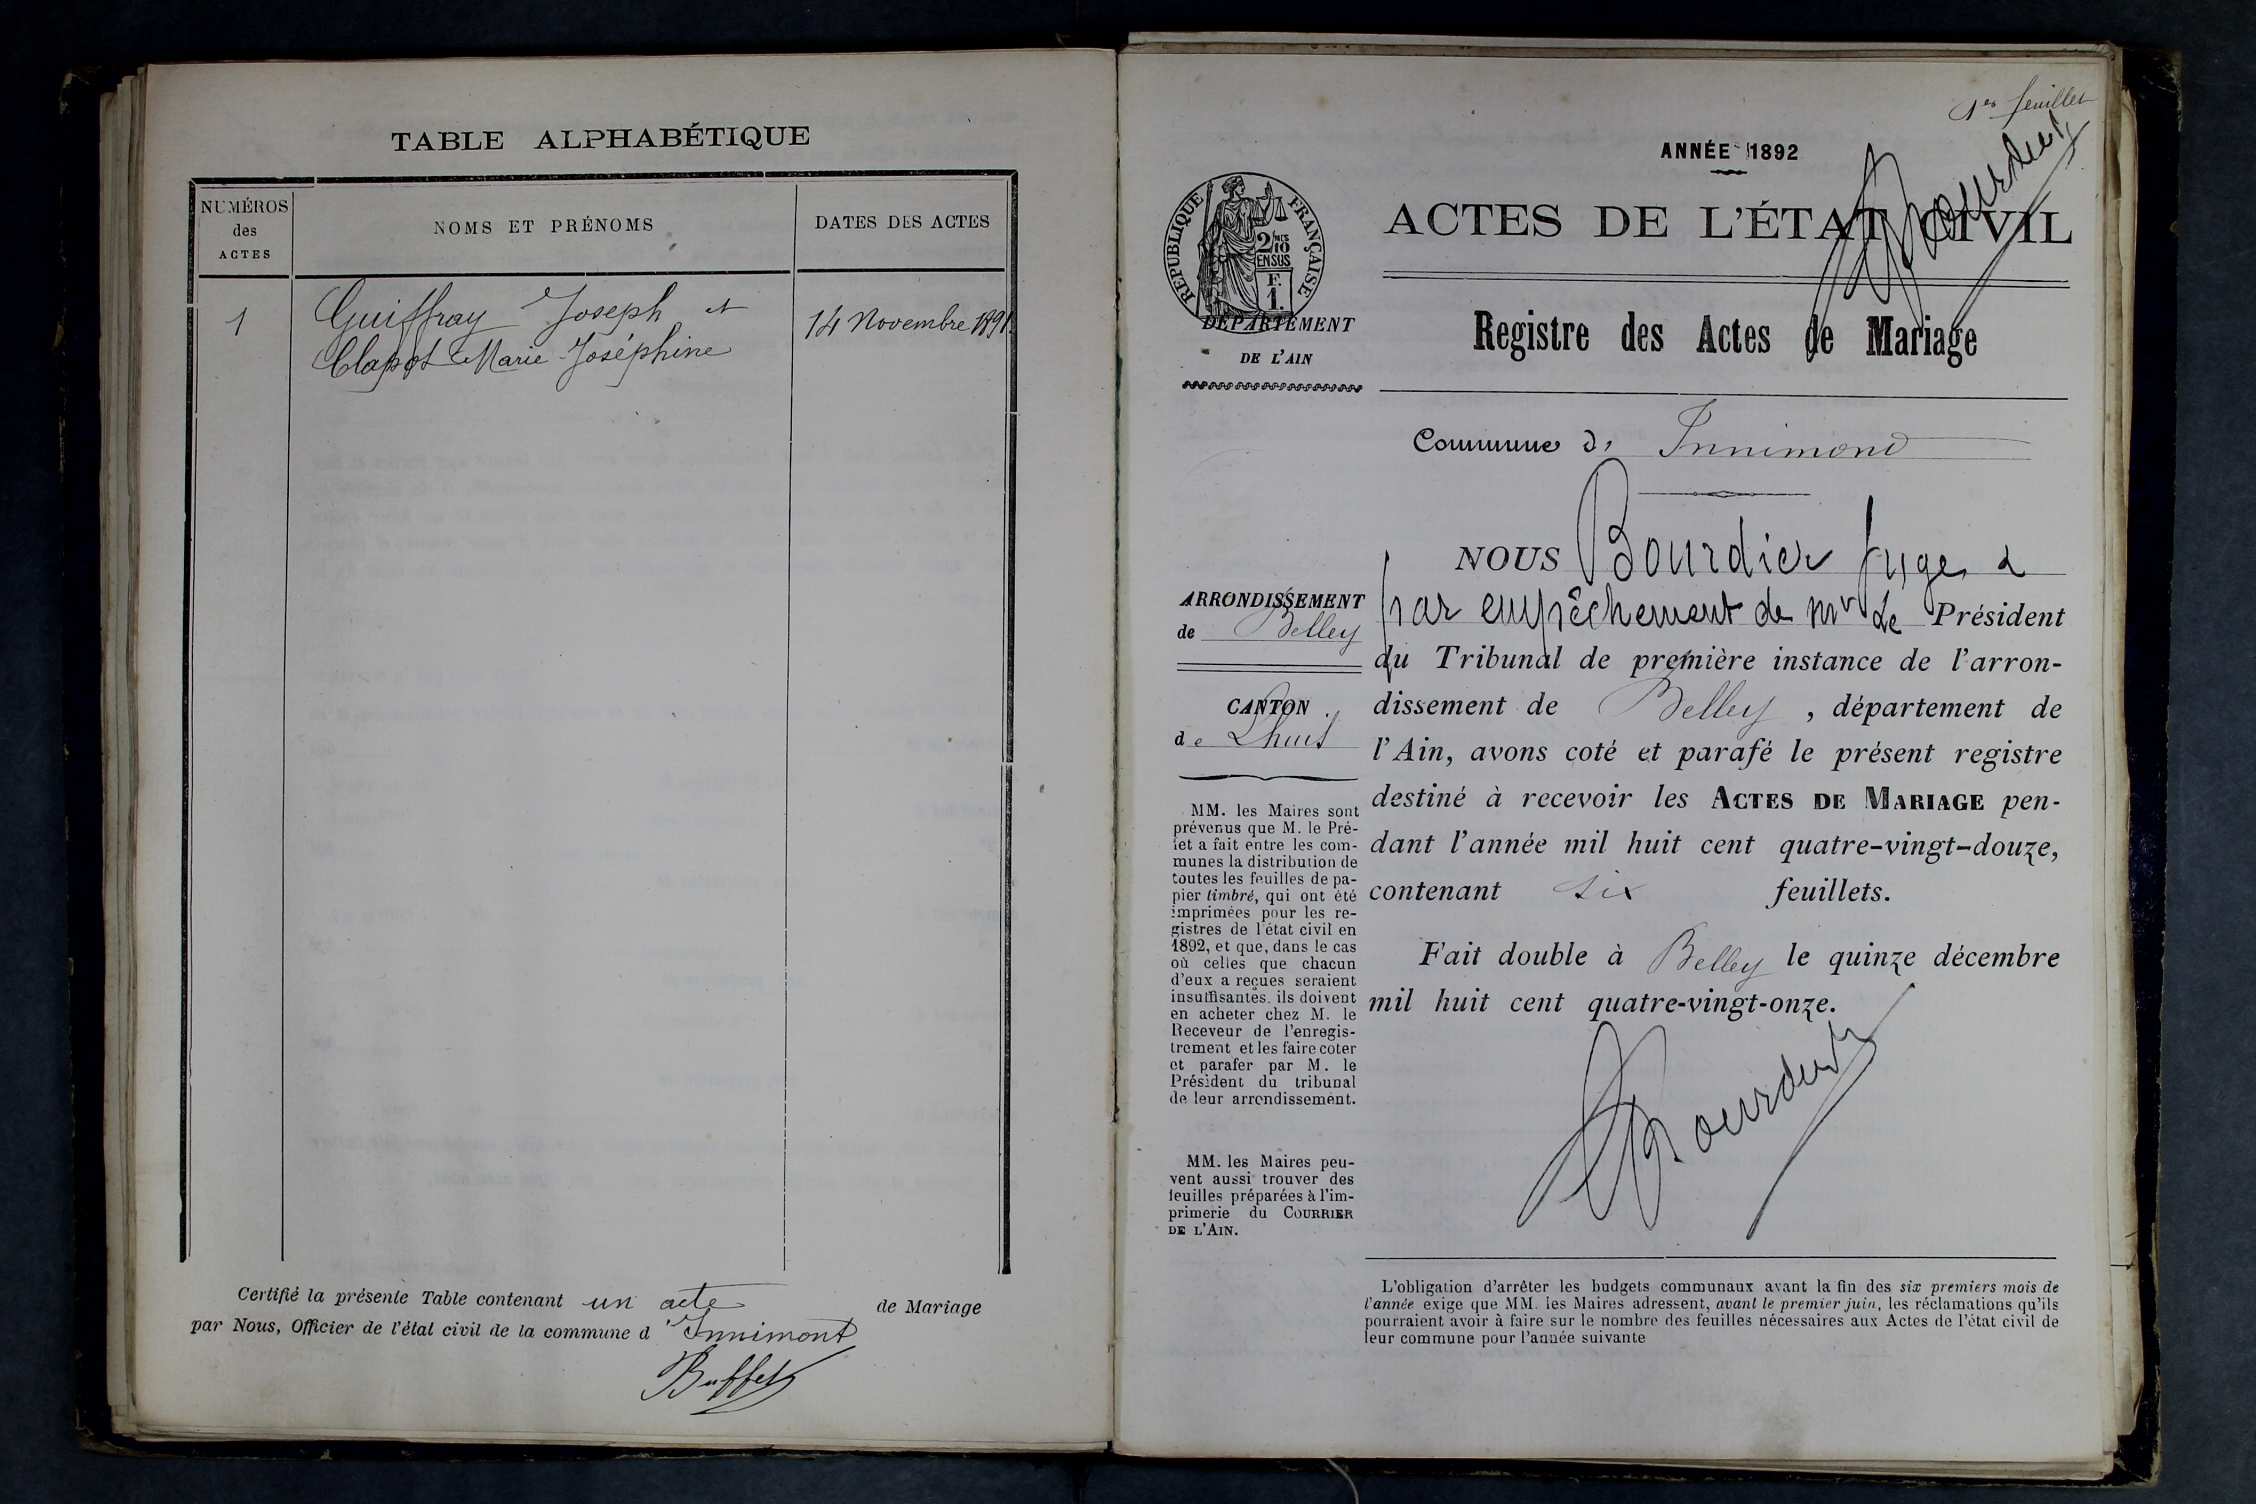 TABLE ALPHABÉTIQUE
NUMÉROS
des
ACTES
NOMS ET PRÉNOMS
DATES DES ACTES
1
Guiffray Joseph et
Clapot Marie Joséphine
14 Novembre 1891
Certifié la présente Table contenant un acte de Mariage
par Nous, Officier de l'état civil de la commune d'Innimont
Buffet
1er feuillet
Bourdier
ANNÉE 1892
RÉPUBLIQUE FRANÇAISE
2/10 EN SUS
F.
1.
ACTES DE L'ÉTAT CIVIL
DÉPARTEMENT
DE L'AIN
Registre des Actes de Mariage
Commune d' Innimond
ARRONDISSEMENT
de Belley
CANTON
de Lhuis
MM. les Maires sont
prévenus que M. le Pré-
fet a fait entre les com-
munes la distribution de
toutes les feuilles de pa-
pier timbré, qui ont été
imprimées pour les re-
gistres de l'état civil en
1892, et que, dans le cas
où celles que chacun
d'eux a reçues seraient
insuffisantes, ils doivent
en acheter chez M. le
Receveur de l'enregis-
trement et les faire coter
et parafer par M. le
Président du tribunal
de leur arrondissement.
MM. les Maires peu-
vent aussi trouver des
feuilles préparées à l'im-
primerie du COURRIER
DE L'AIN.
NOUS Bourdier Juge
par empêchement de Mr Le Président
du Tribunal de première instance de l'arron-
dissement de Belley, département de
l'Ain, avons coté et parafé le présent registre
destiné à recevoir les ACTES DE MARIAGE pen-
dant l'année mil huit cent quatre-vingt-douze,
contenant six feuillets.
Fait double à Belley le quinze décembre
mil huit cent quatre-vingt-onze.
Bourdier
L'obligation d'arrêter les budgets communaux avant la fin des six premiers mois de
l'année exige que MM. les Maires adressent, avant le premier juin, les réclamations qu'ils
pourraient avoir à faire sur le nombre des feuilles nécessaires aux Actes de l'état civil de
leur commune pour l'année suivante